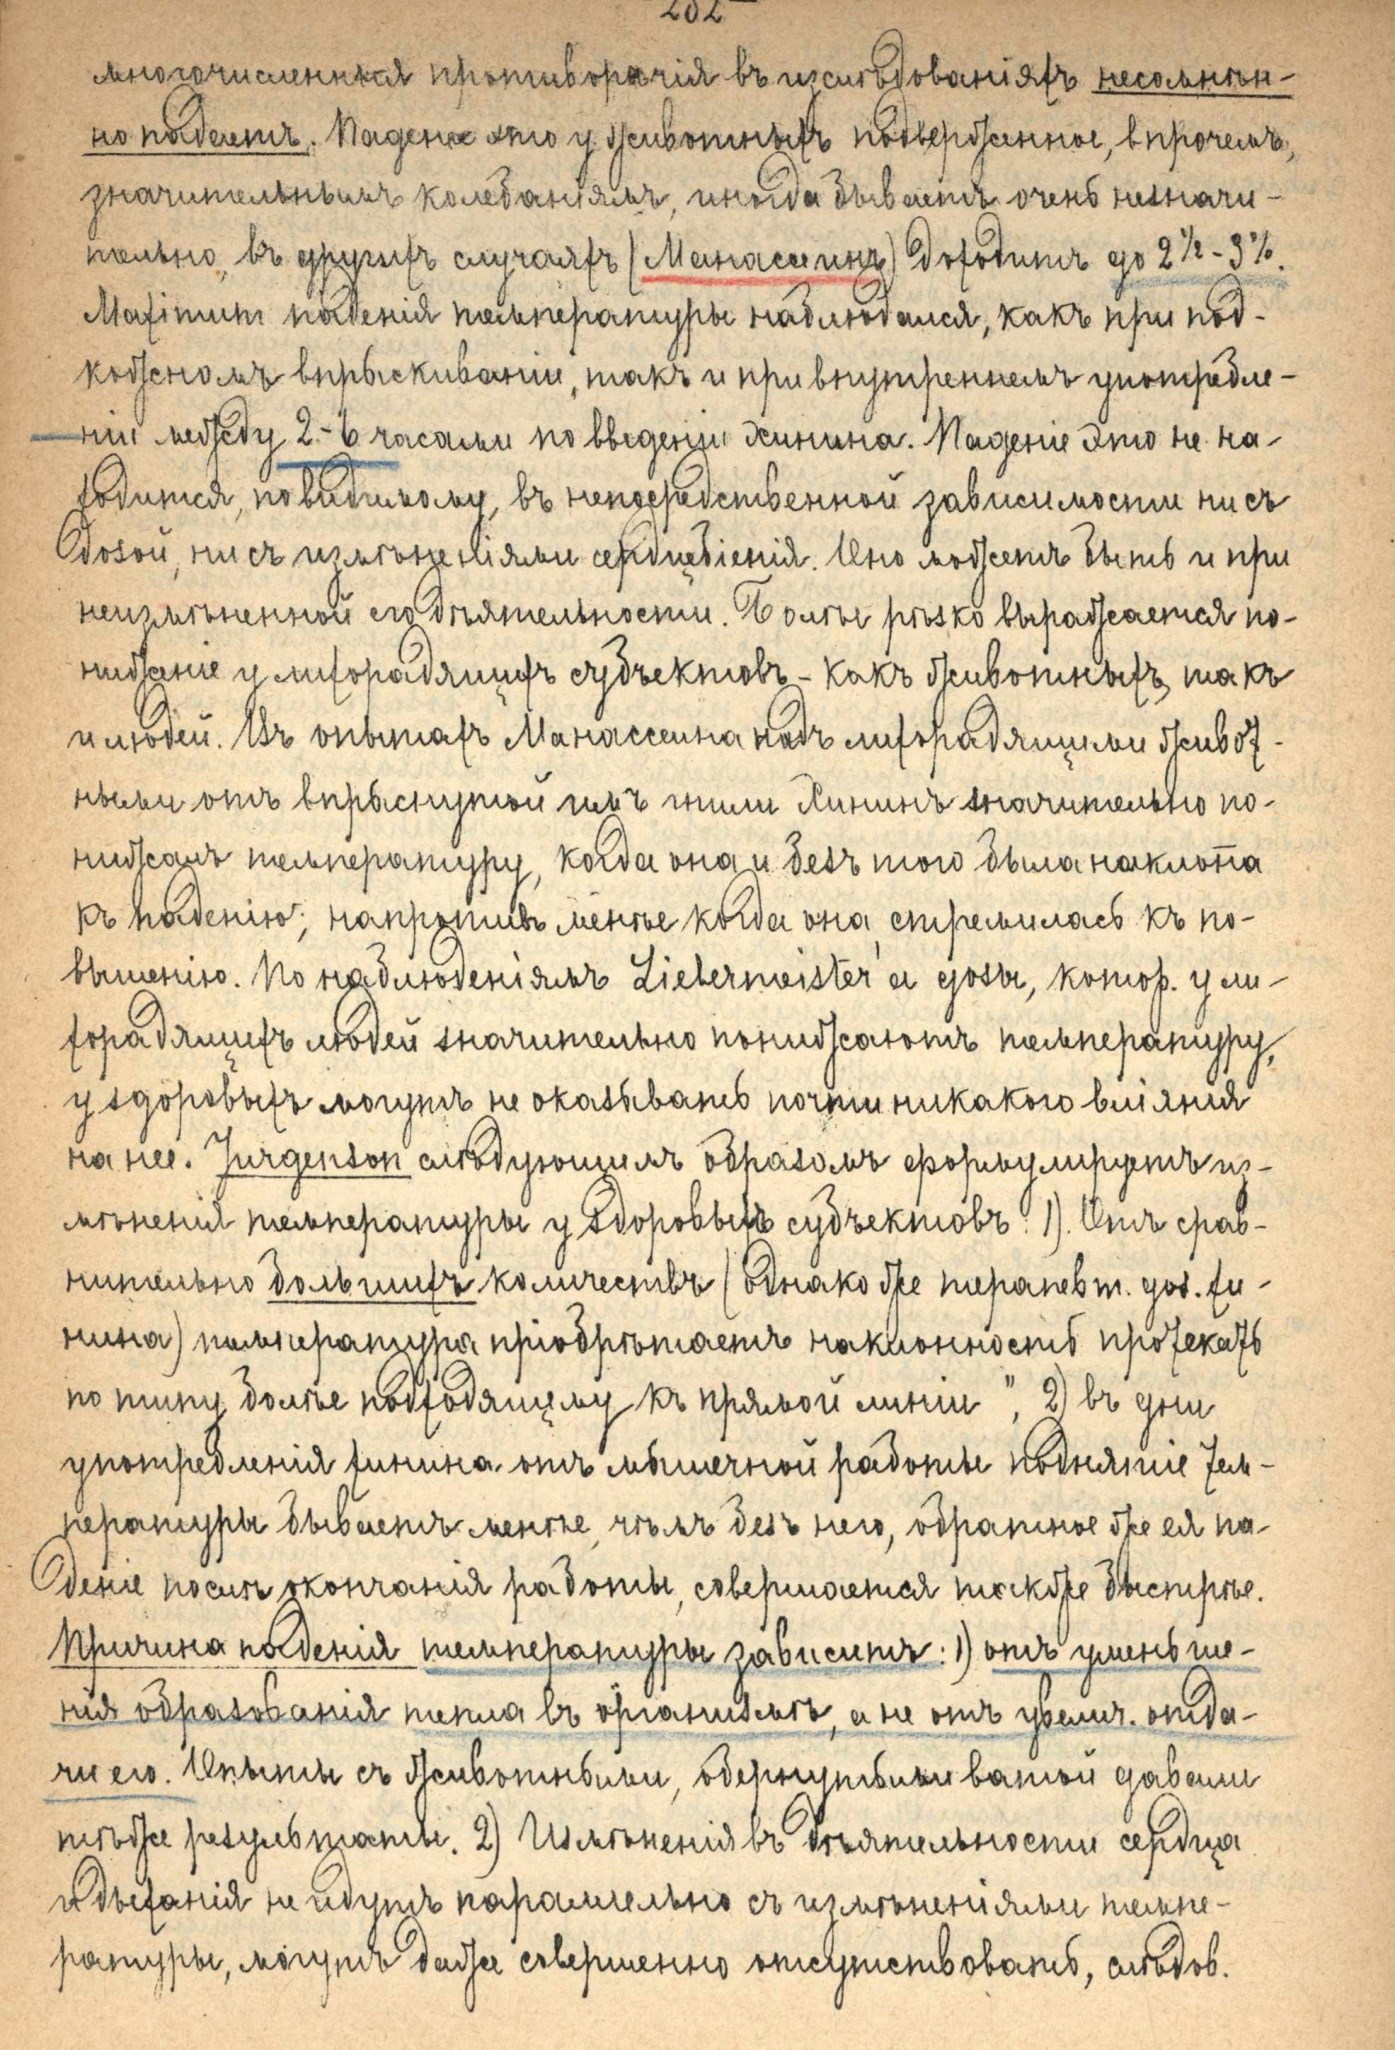 232
многочисленныя противорѣчія въ изслѣдованіяхъ несомнѣн-
но падаетъ. Паденіе это у животныхъ подверженное, впрочемъ,
значительнымъ колебаніямъ, иногда бываетъ очень незначи-
тельно, въ другихъ случаяхъ (Манассеинъ) доходитъ до 2½-3%.
Maximum паденія температуры наблюдался, какъ при под-
кожномъ впрыскиваніи, такъ и при внутреннемъ употребле-
ніи между 2-6 часами по введеніи хинина. Паденіе это не на-
ходится, повидимому, въ непосредственной зависимости ни съ
дозой, ни съ измѣненіями сердцебіенія. Оно можетъ быть и при
неизмѣненной его дѣятельности. Болѣе рѣзко выражается по-
ниженіе у лихорадящихъ субъектовъ - какъ животныхъ, такъ
и людей. Въ опытахъ Манассеина надъ лихорадящими живот-
ными отъ впрыснутой имъ гнили хининъ значительно по-
нижалъ температуру, когда она и безъ того была наклонна
къ паденію; напротивъ менѣе когда она стремилась къ по-
вышенію. По наблюденіямъ Liebermeister'а дозы, котор. у ли-
хорадящихъ людей значительно понижаютъ температуру,
у здоровыхъ могутъ не оказывать почти никакого вліянія
на нее. Jurgenson слѣдующимъ образомъ формулируетъ из-
мѣненія температуры у здоровыхъ субъектовъ: 1). Отъ срав-
нительно большихъ количествъ (однако же терапевт. доз. хи-
нина) температура пріобрѣтаетъ наклонность протекать
по типу, болѣе подходящему къ прямой линіи", 2) въ дни
употребленія хинина отъ мышечной работы поднятіе тем-
пературы бываетъ менѣе, чѣмъ безъ него, обратное же ея па-
деніе послѣ окончанія работы, совершается также быстрѣе.
Причина паденія температуры зависитъ: 1) отъ уменьше-
нія образованія тепла въ организмѣ, а не отъ увелич. отда-
чи его. Опыты съ животными, обернутыми ватой давали
тѣже результаты. 2) Измѣненія въ дѣятельности сердца
и дыханія не идутъ параллельно съ измѣненіями темпе-
ратуры, могутъ даже совершенно отсутствовать, слѣдов.